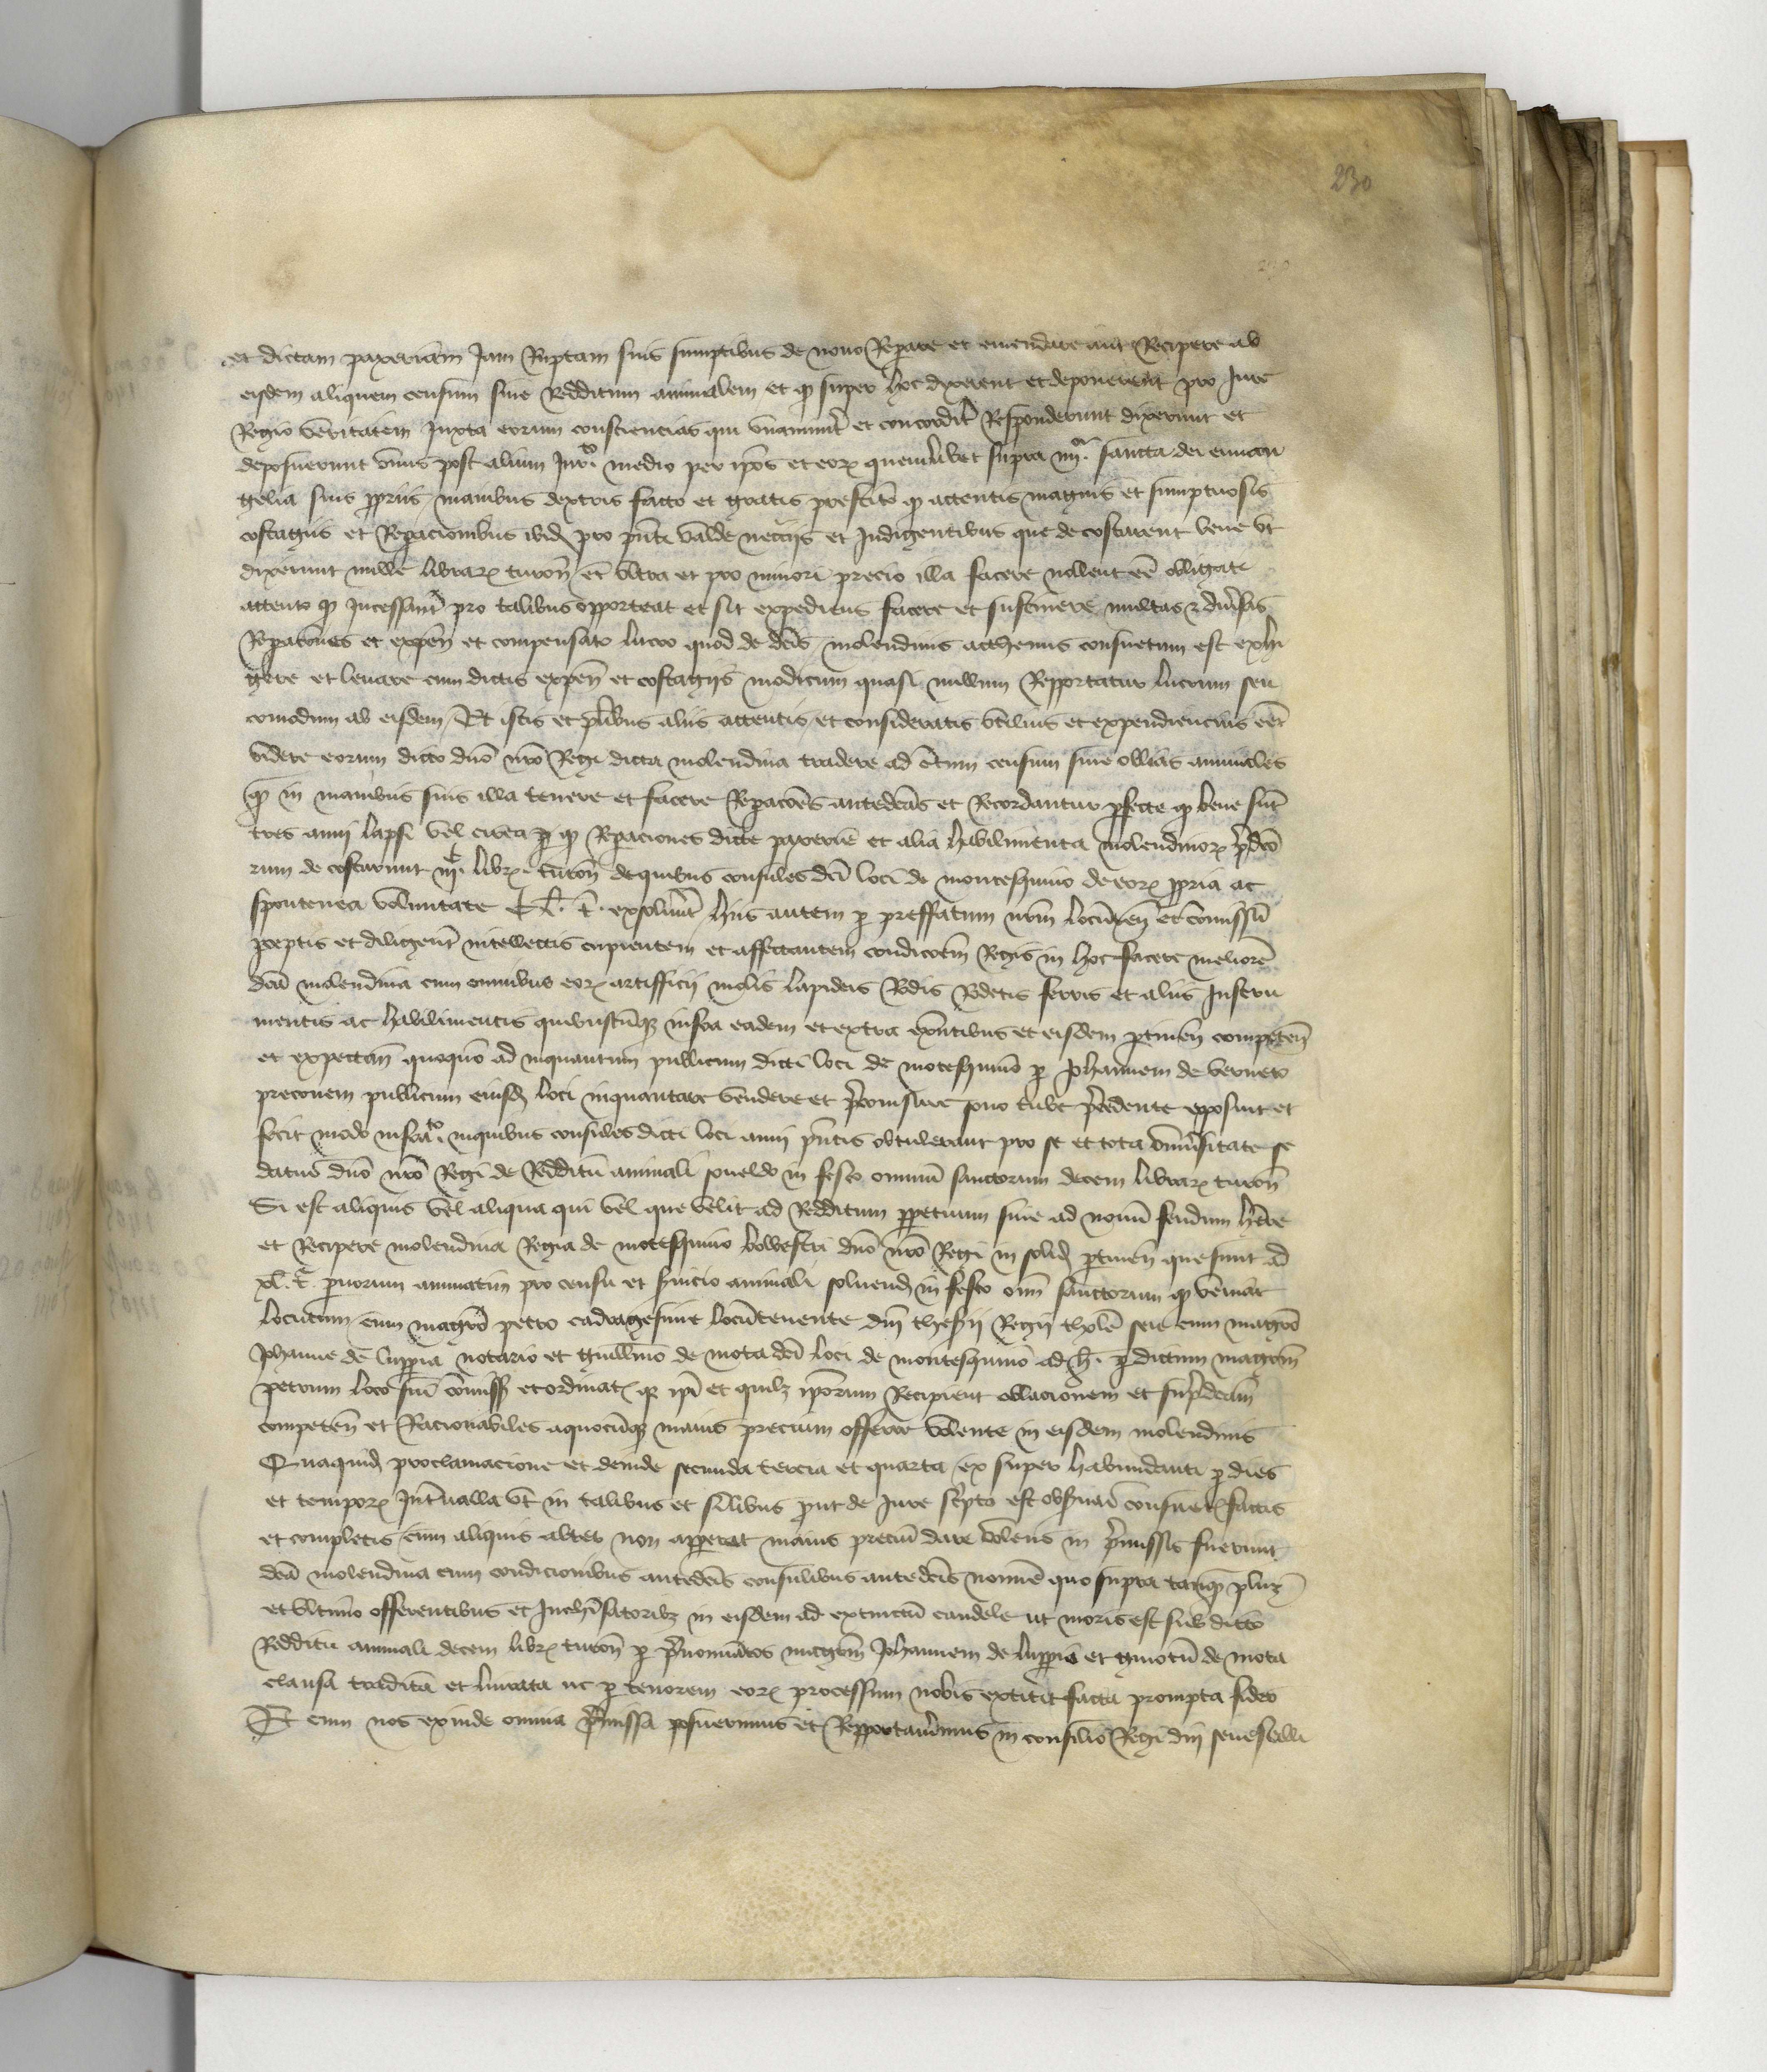 230
et dictam paxeriam Jam Ruptam suis sumptibus de nouo Repare et emendare aut Recipere ab
eisdem aliquem censum siue Redditum annualem et q̄ super hoc dixerent et deponerent pro Jure
Regio veritatem Juxta eorum consciencias qui vnanimit̄ et concordit̄ Responderunt dixerunt et
deposuerunt vnus post alium Jur.º medio per ip̄os et eoꝝ quemlibet supra iiij.ᵒʳ sancta dei euuan
gelia suis ꝓpriis manibus dextris facto et gratis prestito q̄ attentis magnis et sumptuosis
costagiis et Repacionibus ibid̄ pro pn̄ti valde necc̄ijs et Indigentibus que de costarent bene vt
dixerunt mille libraꝝ turon̄ et vltra et pro minori precio illa facere nollent eē obligati
attento q̄ Jncessant̄ pro talibus opporteat et sit expediens facere et sustinere multas et diūsas
Repatōnes et expen̄ et compensato lucro quod de dc̄is molendinis acthenus consuetum est exhi
gere et leuare cum dictis expen̄ et costagijs modicum quasi nullum Repportatur lucrum seu
comodum ab eisdem Et istis et pl̄ibus aliis attentis et consideratis vtilius et expendiencius eēt
videre eorum dicto dn̄o nr̄o Regi dicta molendina tradere ad c̄tum censum siue oblias annuales
q̄ in manibus suis illa tenere et facere Repacōes antedc̄as et Recordantur ꝑfecte q̄ bene sūt
tres anni lapsi vel circa q̄ Repaciones dicte paxerie et alia habilimenta molendinoꝝ p̄dco
rum de costarunt iijᶜ. libꝝ. turon̄ de quibus consules dc̄i loci de montesquiuo de eoꝝ ꝓpria ac
spontenea voluntate Cl. t̄. exsoluer̄t hiis autem ꝑ preffatum nr̄m locūten̄ et comissū
ꝑceptis et diligent̄ intellectis cupientem et affectantem condicōem Regis in hoc facere meliorē
dc̄a molendina cum omnibus eoꝝ artifficij molis lapideis Rodis Rodetis ferris et aliis Instru
mentis ac habilimentis quibuscūqꝫ infra eadem et extra exn̄tibus et eisdem ꝑtinen̄ competen̄
et expectan̄ quoquo ad inquantum publicum dicti loci de motesquiuo ꝑ Johannem de verneto
preconem publicum eiusd̄ loci inquantare vendere et p̄conisare sono tube p̄cedente expposuit et
fecit modo infraᵗᵒ. inquibus consules dicti loci anni pn̄tis obtulerant pro se et tota vniūsitate se
daturos dn̄o nr̄o Regi de Redditu annuali soluendo in festo omniū sanctorum decem libraꝝ turon̄
Si est aliquis vel aliqua qui vel que velit ad Redditum ꝑpetuum siue ad nouū feudum hr̄e
et Recipere molendina Regia de motesquiuo volvestri dn̄o nr̄o Regi in solid̄ ꝑtinen̄ que sunt ad
xl. t̄. ꝑuorum annuatim pro censu et seruicio annuali soluend̄ in festo om̄i sanctorum q̄ veniat
locutum cum magr̄o petro cadragesime locūtenente dn̄i thesrij Regij thole seu cum magr̄o
Johanne de luppia notario et guill̄mo de mota dc̄i loci de montesquiuo ad h. ꝑ dictum magr̄m
petrum loco sui comiss̄ et ordinat̄ q̄ ip̄i et quilꝫ ip̄orum Recipient oblacionem et supdc̄am
competen̄ et Racionabiles aquocūqꝫ maius precium offerre volente in eisdem molendinis
Quaquid̄ proclamacione et deinde secunda tercia et quarta ex super habundanti ꝑ dies
et tempoꝝ Int̄ualla vt in talibus et sil̄ibus ꝓut de Jure sc̄pto est obseruari consuet̄ factis
et completis cum aliquis alter non apperat maius preciū dare volens in p̄missis fuerunt
dc̄a molendina cum condicionibus antedc̄is consulibus antedc̄is nomine quo supra tanqꝫ plus
et vltimo offerentibus et Inchrisatoribꝫ in eisdem ad extinctū candele ut moris est sub dicto
Redditu annuali decem libꝝ turon̄ ꝑ p̄nominatos magr̄m Johannem de luppia et guiotū de mota
clausa tradita et liurata uc ꝑ tenorem eoꝝ processum nobis extitit facta prompta fides
Et cum nos exinde omnia p̄missa posuerimus et Repportauerimus in consilio Regi dn̄i senescalli